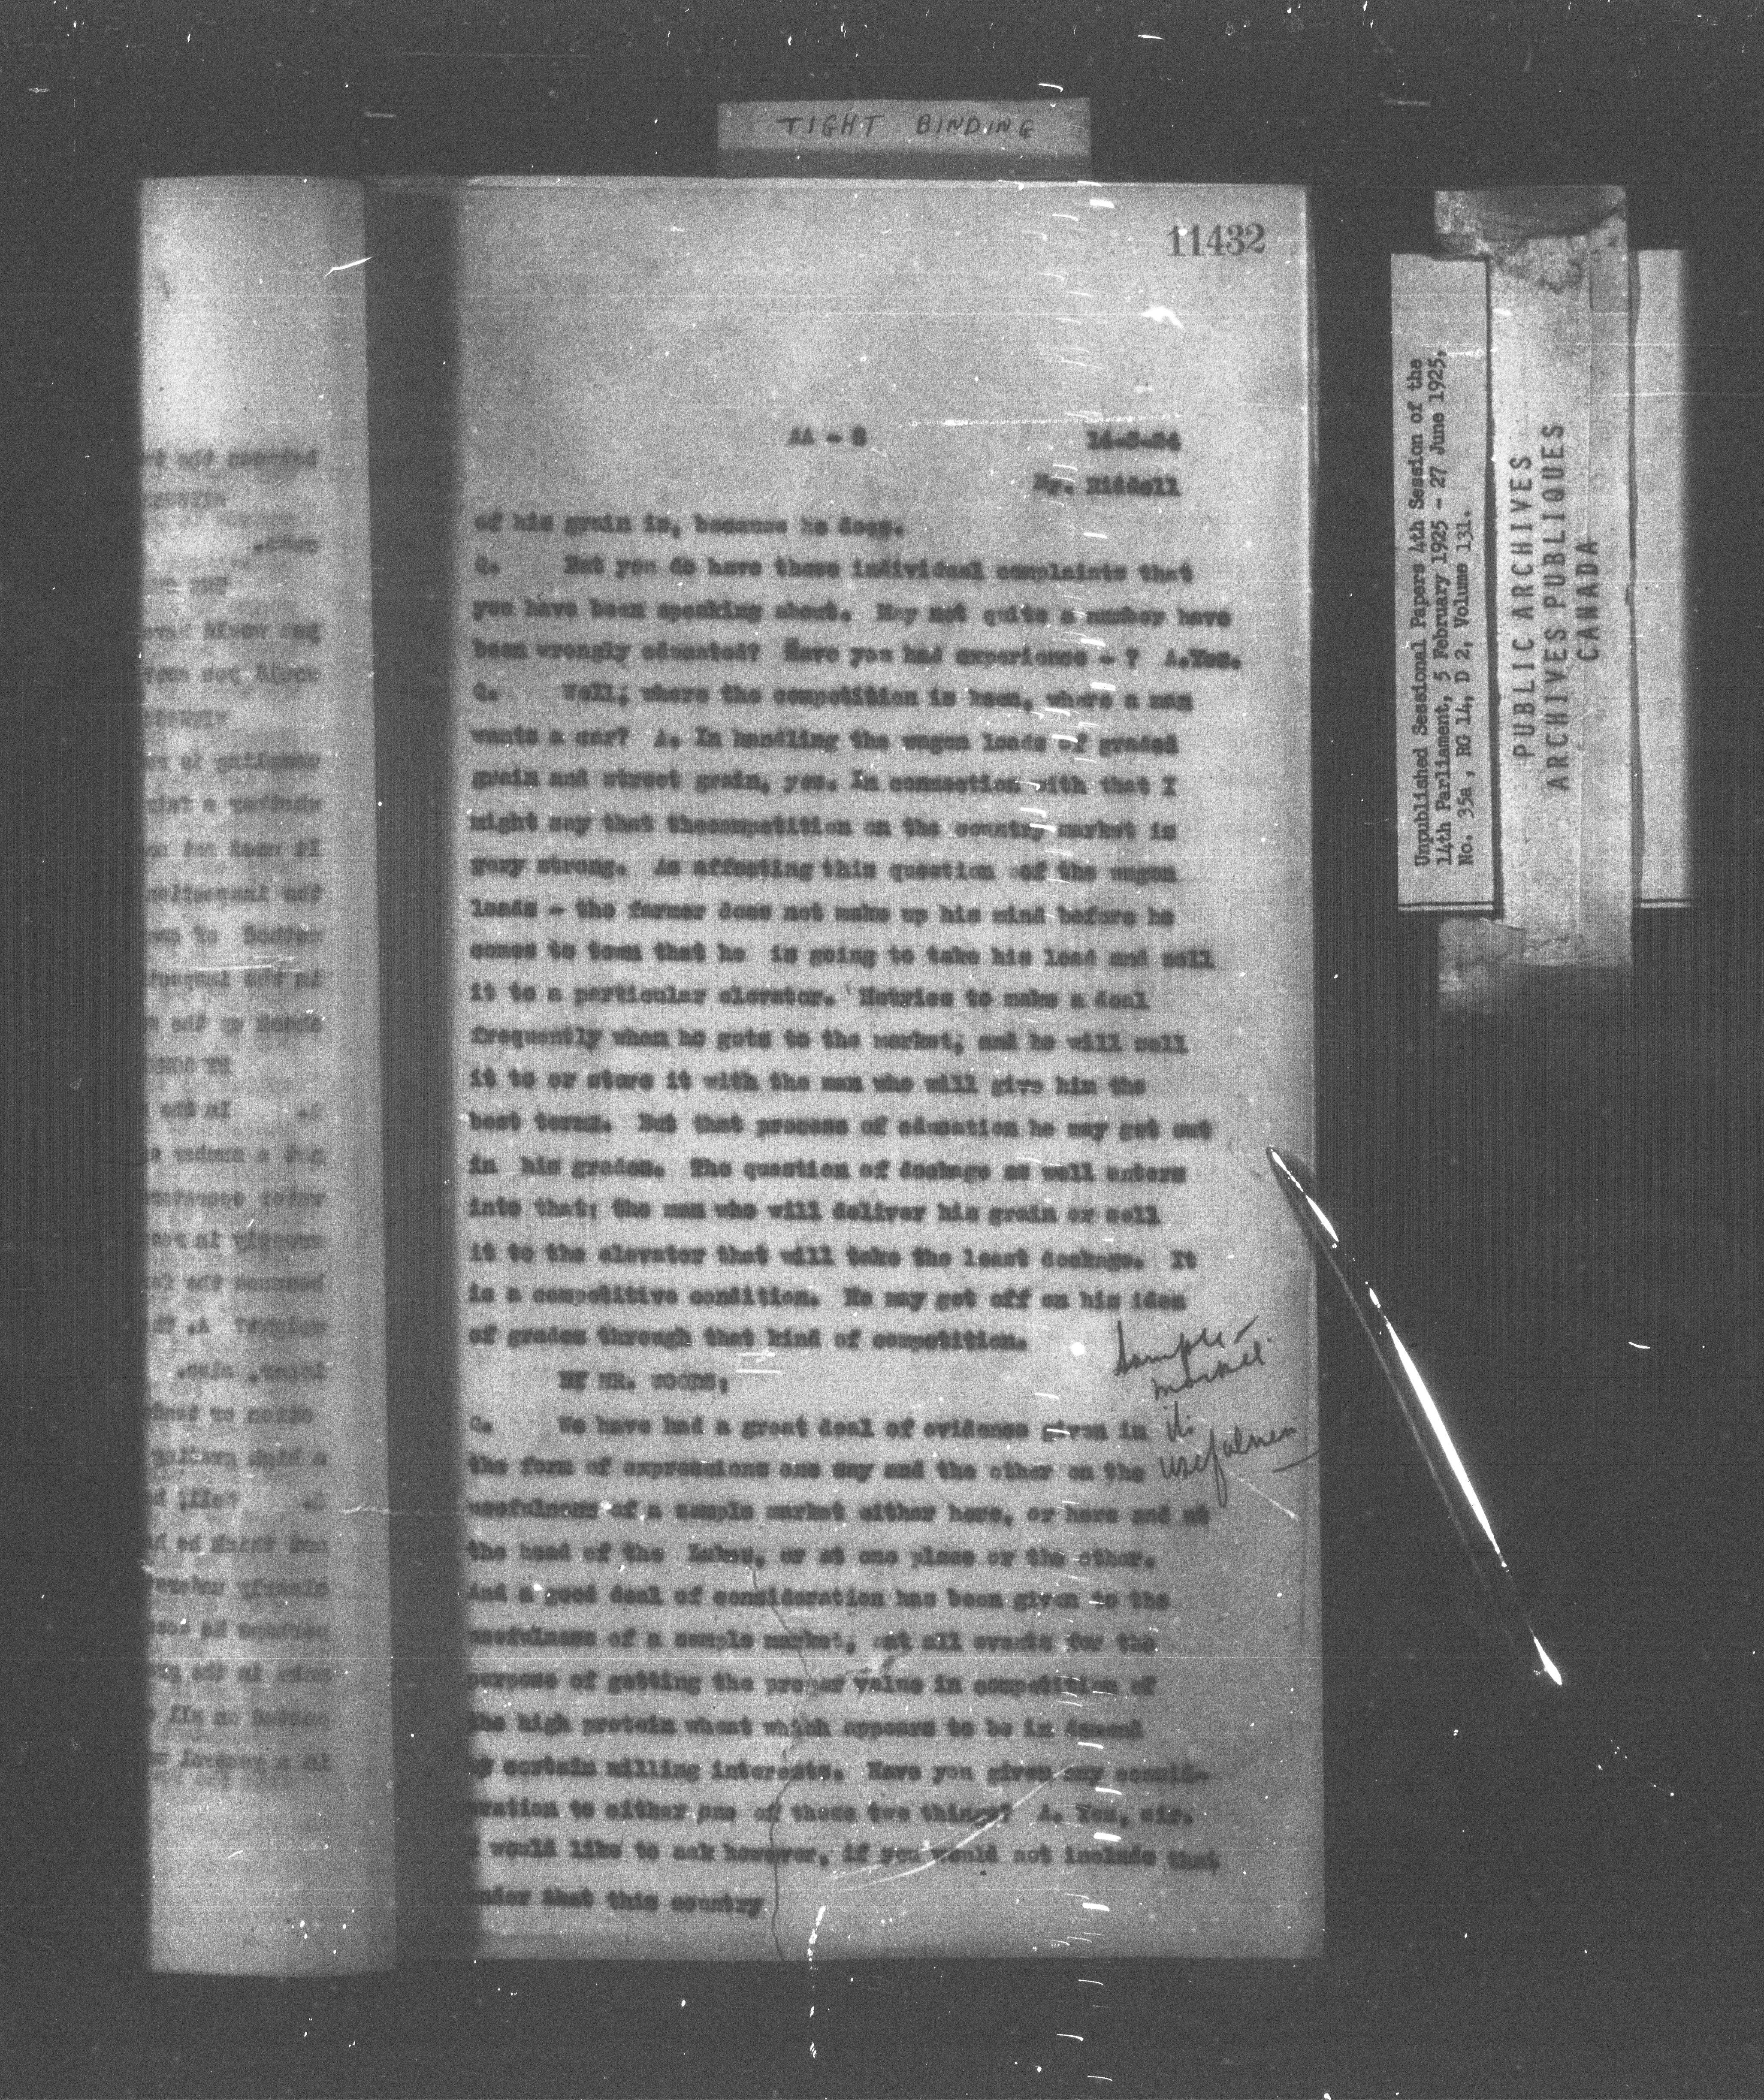 TIGHT BINDING
11432
AA - 8
14-3-24
Mr. Riddell
of his grain is, because he does.
Q. But you do have those individual complaints that
you have been speaking about. May not quite a number have
been wrongly educated? Have you had experience - ? A.Yes.
Q. Well, where the competition is keen, where a man
wants a car? A. In handling the wagon loads of graded
grain and street grain, yes. In connection with that I
might say that thecompetition on the country market is
very strong. As affecting this question of the wagon
loads - the farmer does not make up his mind before he
comes to town that he is going to take his load and sell
it to a particular elevator. Hetries to make a deal
frequently when he gets to the market, and he will sell
it to or store it with the man who will give him the
best terms. But that process of education he may get out
in his grades. The question of dockage as well enters
into that; the man who will deliver his grain or sell
it to the elevator that will take the least dockage. It
is a competitive condition. He may get off on his idea
of grades through that kind of competition.
BY MR. WOODS:
Q. We have had a great deal of evidence given in
the form of expressions one way and the other on the
usefulness of a sample market either here, or here and at
the head of the Lakes, or at one place or the other.
And a good deal of consideration has been given to the
usefulness of a sample market, at all events for the
purpose of getting the proper value in competition of
the high protein wheat which appears to be in demand
by certain milling interests. Have you given any consid-
eration to either one of those two things? A. Yes, sir.
I would like to ask however, if you would not include that
under that this country
Sample
market
its
usefulness
Unpublished Sessional Papers 4th Session of the
14th Parliament, 5 February 1925 - 27 June 1925,
No. 35a, RG 14, D 2, Volume 131.
PUBLIC ARCHIVES
ARCHIVES PUBLIQUES
CANADA